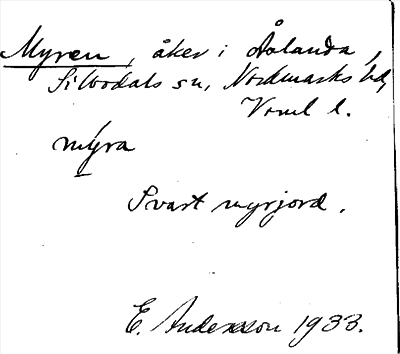 Myren, åker i Ålanda,
Silbodals sn, Nordmarks hd,
Verml l.
mýra
Svart myrjord.
E. Andersson 1933.